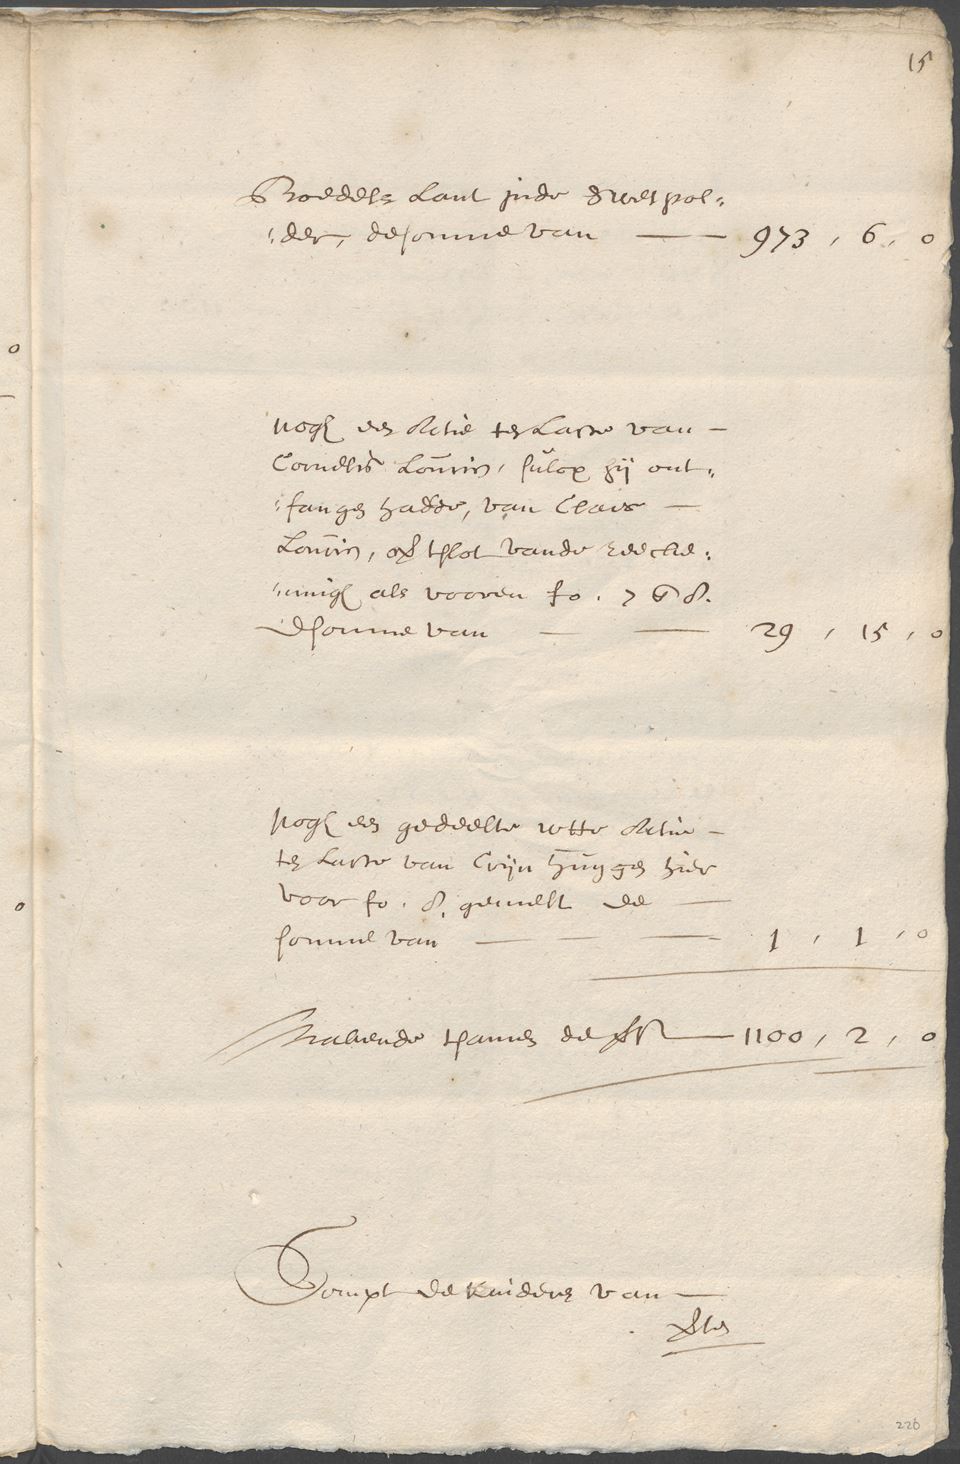 15
Boedels Lant inde Zwetpol¬
¬der, de somme van — — 973 , 6 , 0
nogh een Actie ten Laste van —
Cornelis Louris, sulcx hij ont¬
¬fangen hadde, van Claes —
Louris, op tslot vande reecke¬
¬ningh als vooren fo. 768.
de somme van — — 29 , 15 , 0
nogh een gedeelte uytte Actie —
ten Laste van Crijn Huygen hier
voor fo. 8. gemelt de —
somme van — — — 1 , 1 , 0
Makende tsamen de — 1100 , 2 , 0
Compt de kinderen van —
220